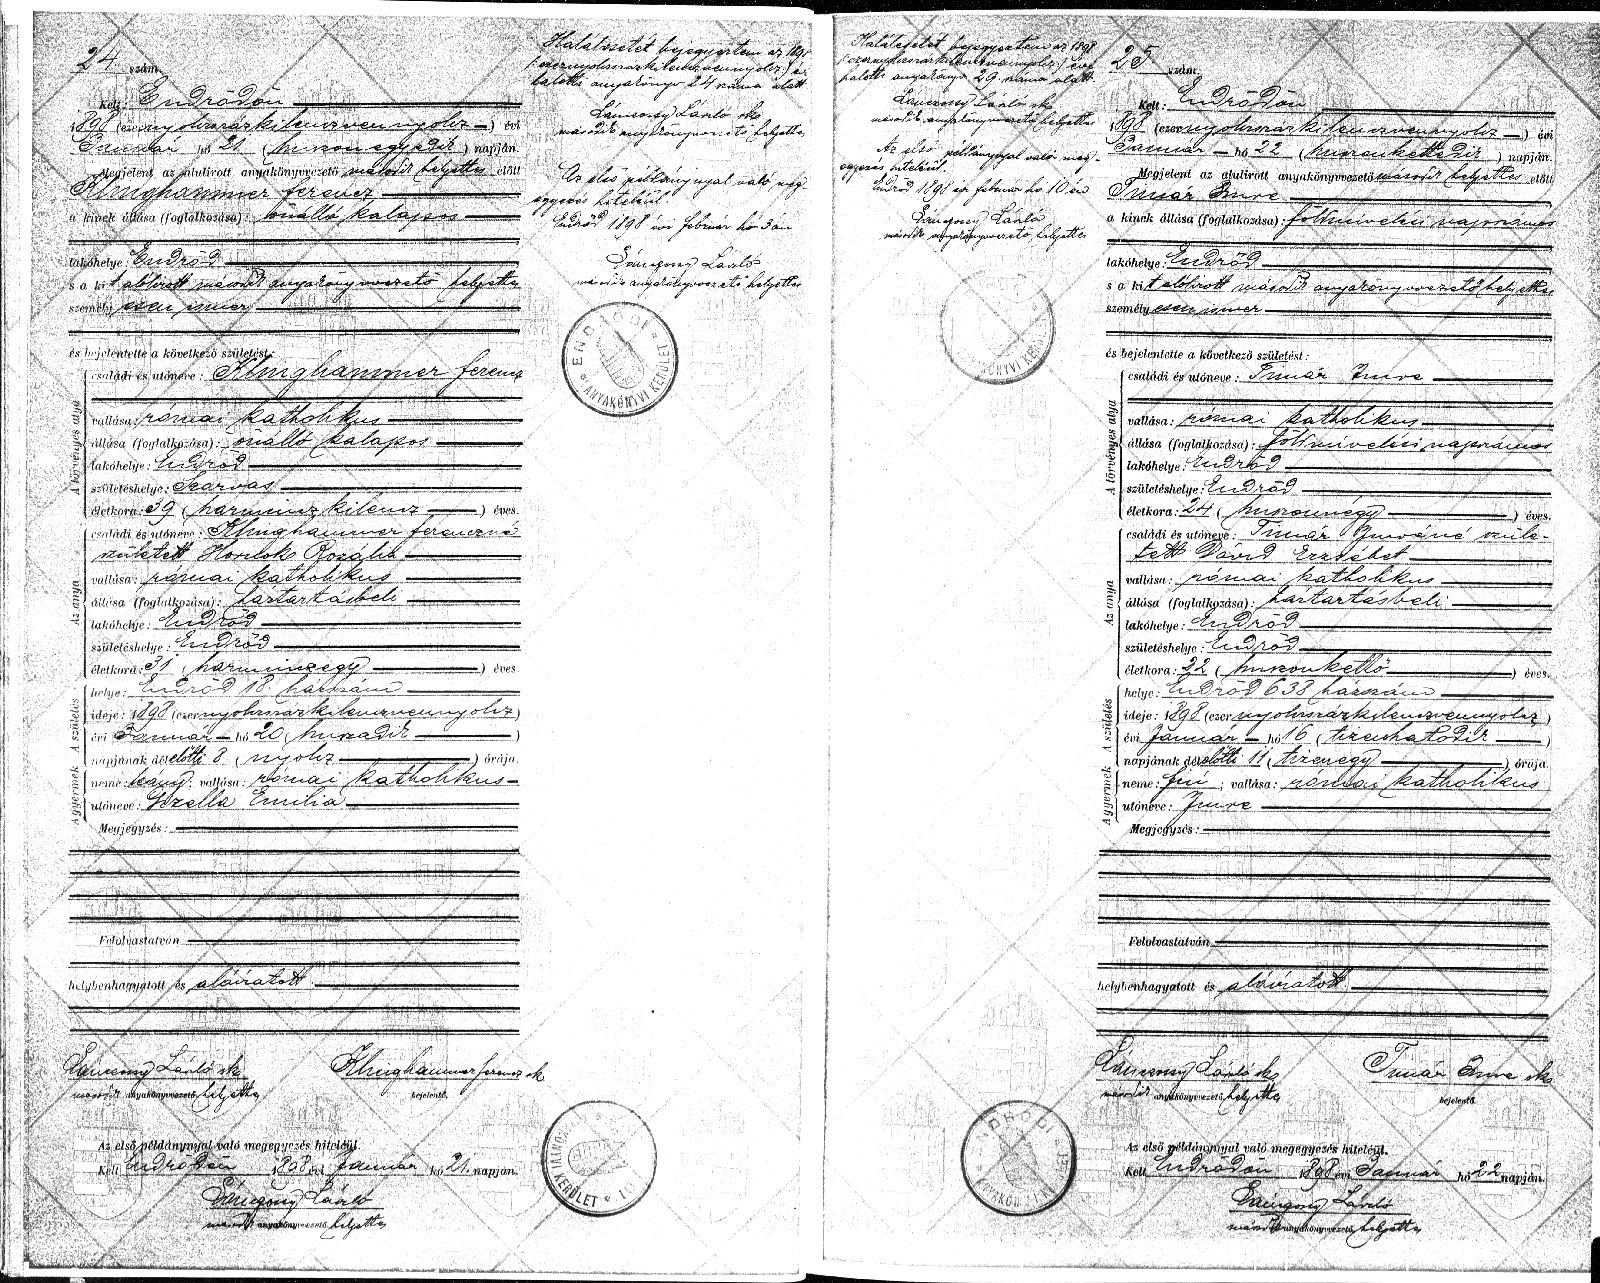 24. szám.
Kelt: Endrődön
1898 (ezernyolcszázkilenczvennyolcz) évi
Január hó 21. (huszonegyedik) napján.
Megjelent az alulirott anyakönyvezető második helyettes előtt
Klinghammer Ferencz
a kinek állása (foglalkozása): önálló kalapos
lakóhelye: Endrőd
s a kit alólirott második anyakönyvvezető helyettes
személyesen ismer
és bejelentette a következő születést:
A törvényes atya
családi és utóneve: Klinghammer Ferencz
vallása: római katholikus
állása (foglalkozása): önálló kalapos
lakóhelye: Endrőd
születéshelye: Szarvas
életkora: 39 (harminczkilencz) éves.
Az anya
családi és utóneve: Klinghammer Ferenczné
született Hornok Rozália
vallása: római katholikus
állása (foglalkozása): háztartásbeli
lakóhelye: Endrőd
születéshelye: Endrőd
életkora: 31 (harminczegy) éves.
A születés
helye: Endrőd 18 házszám
ideje: 1898 (ezernyolczszázkilenczvennyolcz)
évi Január hó 20 (huszadik)
napjának délelőtti 8 (nyolcz) órája.
A gyermek
neme: leány; vallása: római katholikus
utóneve: Gizella Emilia
Megjegyzés:
Felolvastatván
helybenhagyatott és aláiratott.
László sk
második anyakönyvvezető helyettes
Klinghammer Ferencz sk
bejelentő.
Az első példánynyal való megegyezés hiteléül.
Kelt Endrődön 1898 évi Január hó 21. napján.
László
második anyakönyvvezető helyettes
Halálesetét bejegyeztem az 1898
(ezernyolczszázkilenczvennyolcz) évi
halotti anyakönyv 24 száma alatt
László sk
második anyakönyvvezető helyettes
Az első példánynyal való meg-
egyezés hiteléül.
Endrőd 1898 évi február hó 3án
László
második anyakönyvvezető helyettes
ENDRŐDI
ANYAKÖNYVI KERÜLET
Halálesetét bejegyeztem az 1898
(ezernyolczszázkilenczvennyolcz) évi
halotti anyakönyv 29. száma alatt
László sk
második anyakönyvvezető helyettes
Az első példánynyal való meg-
egyezés hiteléül.
Endrőd 1898 évi február hó 10én
László
második anyakönyvvezető helyettes
25 szám.
Kelt: Endrődön
1898 (ezernyolczszázkilenczvennyolcz) évi
Január hó 22 (huszonkettedik) napján.
Megjelent az alulirott anyakönyvvezető második helyettes előtt
Timár Imre
a kinek állása (foglalkozása): földmivelési napszámos
lakóhelye: Endrőd
s a kit alólirott második anyakönyvvezető helyettes
személyesen ismer
és bejelentette a következő születést:
A törvényes atya
családi és utóneve: Timár Imre
vallása: római katholikus
állása (foglalkozása): földmivelési napszámos
lakóhelye: Endrőd
születéshelye: Endrőd
életkora: 24 (huszonnégy) éves.
Az anya
családi és utóneve: Timár Imréné szüle-
tett Dávid Erzsébet
vallása: római katholikus
állása (foglalkozása): háztartásbeli
lakóhelye: Endrőd
születéshelye: Endrőd
életkora: 22 (huszonkettő) éves.
A születés
helye: Endrőd 638 házszám
ideje: 1898 (ezernyolczszázkilenczvennyolcz)
évi Január hó 16 (tizenhatodik)
napjának délelőtti 11 (tizenegy) órája.
A gyermek
neme: fiú; vallása: római katholikus
utóneve: Imre
Megjegyzés:
Felolvastatván
helybenhagyatott és aláiratott.
László sk
második anyakönyvvezető helyettes
Timár Imre sk
bejelentő.
Az első példánynyal való megegyezés hiteléül.
Kelt Endrődön 1898 évi Január hó 22 napján.
László
második anyakönyvvezető helyettes